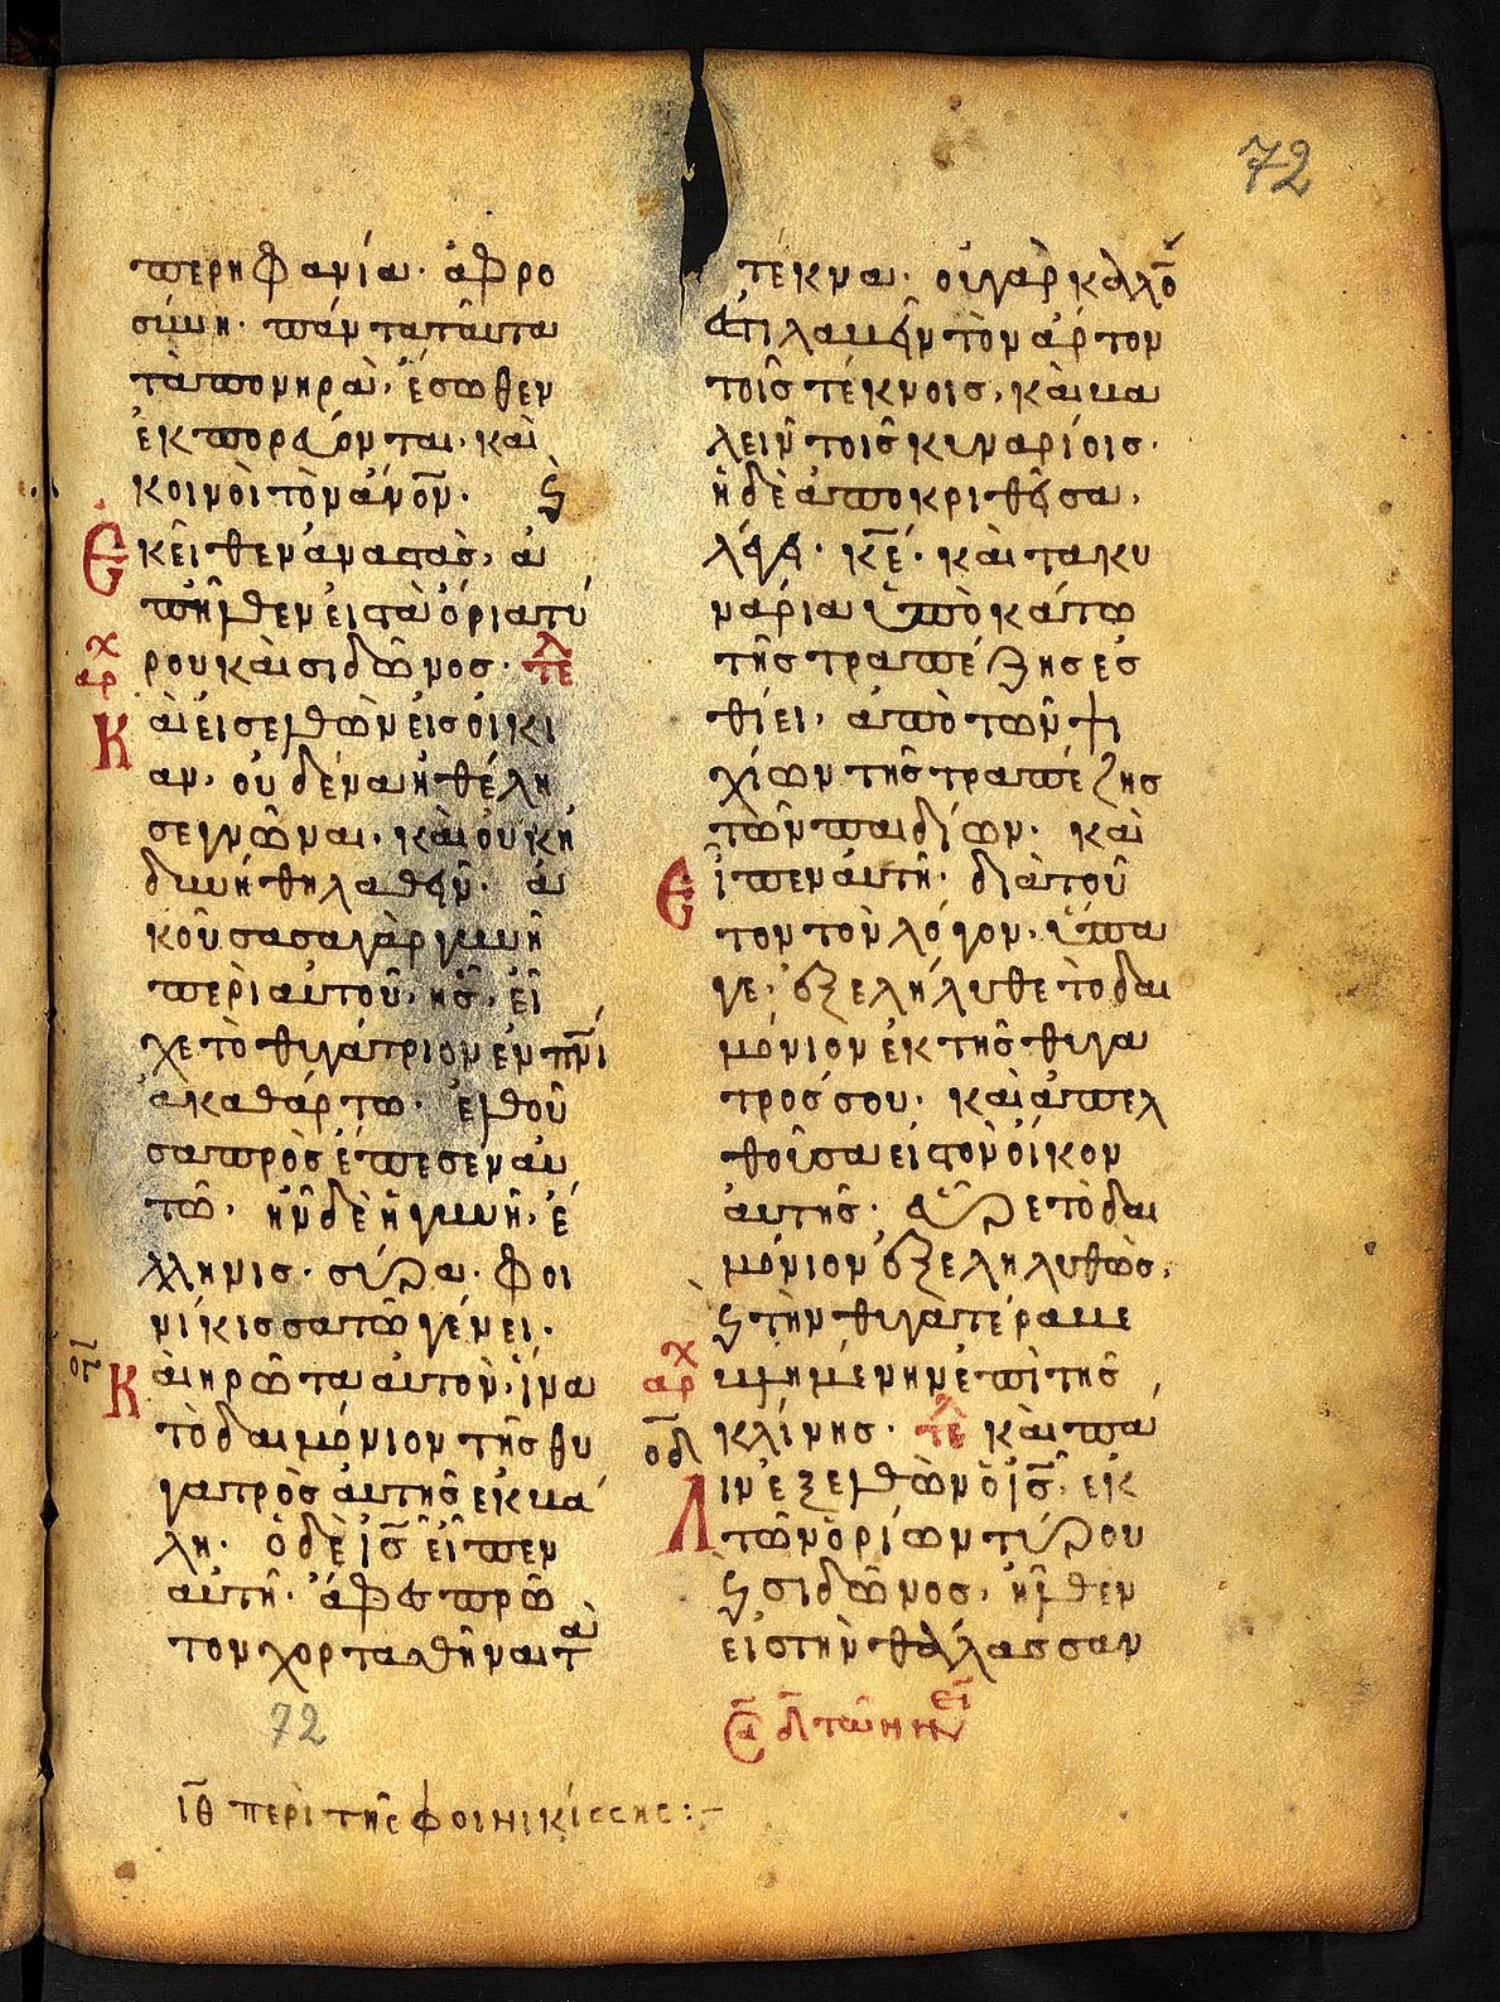 72
περηφανία· ἀφρο
σύνη· πάντα ταῦτα
τὰ πονηρὰ, ἔσωθεν
ἐκπορεύονται· καὶ
κοινοῖ τὸν ἄνο̅ν· ϛ̀
Ἐκεῖθεν ἀναστὰς, ἀ
πῆλθεν εἰς τὰ ὅρια τύ
ρου καὶ σιδῶνος· τε̅λ
αρχ
Καὶ εἰσελθὼν εἰς οἰκί
αν, οὐδένα ἤθέλη
σε γνῶναι· καὶ οὐκ ἠ
δυνήθη λαθεῖν· ἀ
κούσασα γὰρ γυνὴ
περὶ αὐτοῦ, ἧς, εἶ
χε τὸ θυγάτριον ἐν πν̅ι
ἀκαθάρτω· ἐλθοῦ
σα πρὸς ἔπεσεν αὐ
τῶ· ἦν δὲ ἡ γυνὴ, ἑ
λληνις· σύρα· φοι
νίκισσα τῶ γένει·
Καὶ ἠρῶτα αὐτὸν, ἵνα
τὸ δαιμόνιον τῆς θυ
γατρὸς αὐτῆς ἐκβά
λη· ὁ δὲ ι̅ς εἶπεν
αὐτῆ· ἄφες πρῶ
τον χορτασθῆναι τὰ
72
ι̅θ περὶ τῆς φοινικίσσης:–
τέκνα· οὐ γὰρ καλὸ̅
ἐστι λαβεῖν τὸν ἄρτον
τοῖς τέκνοις, καὶ βα
λεῖν τοῖς κυναρίοις·
ἡ δὲ ἀποκριθεῖσα,
λέγει· κ̅ε· καὶ τα κυ
νάρια ὑποκάτω
τῆς τραπέζης ἐσ
θίει, ἀπὸ τῶν ψι
χίων τῆς τραπέζης
τῶν παιδίων· καὶ
Εἶπεν αὐτῆ· διὰ τοῦ
τον τὸν λόγον, ὕπα
γε, ἐξελήλυθε τὸ δαι
μόνιον ἐκ τῆς θυγα
τρός σου· καὶ ἀπελ
θοῦσα εἰς τὸν οἶκον
αὐτῆς· εὗρε τὸ δαι
μόνιον ἐξεληλυθὼς,
ϛ̀ τὴν θυγατέρα βε
βλημένην ἐπὶ τῆς
αρχ
κλίνης· τε̅λ καὶ πά
ο̅δ
Λιν ἐξελθὼν ὁ ι̅ς, ἐκ
τῶν ὁρίων τύρου
ϛ̀ σιδῶνος, ἦλθεν
εἰς τὴν θάλασσαν